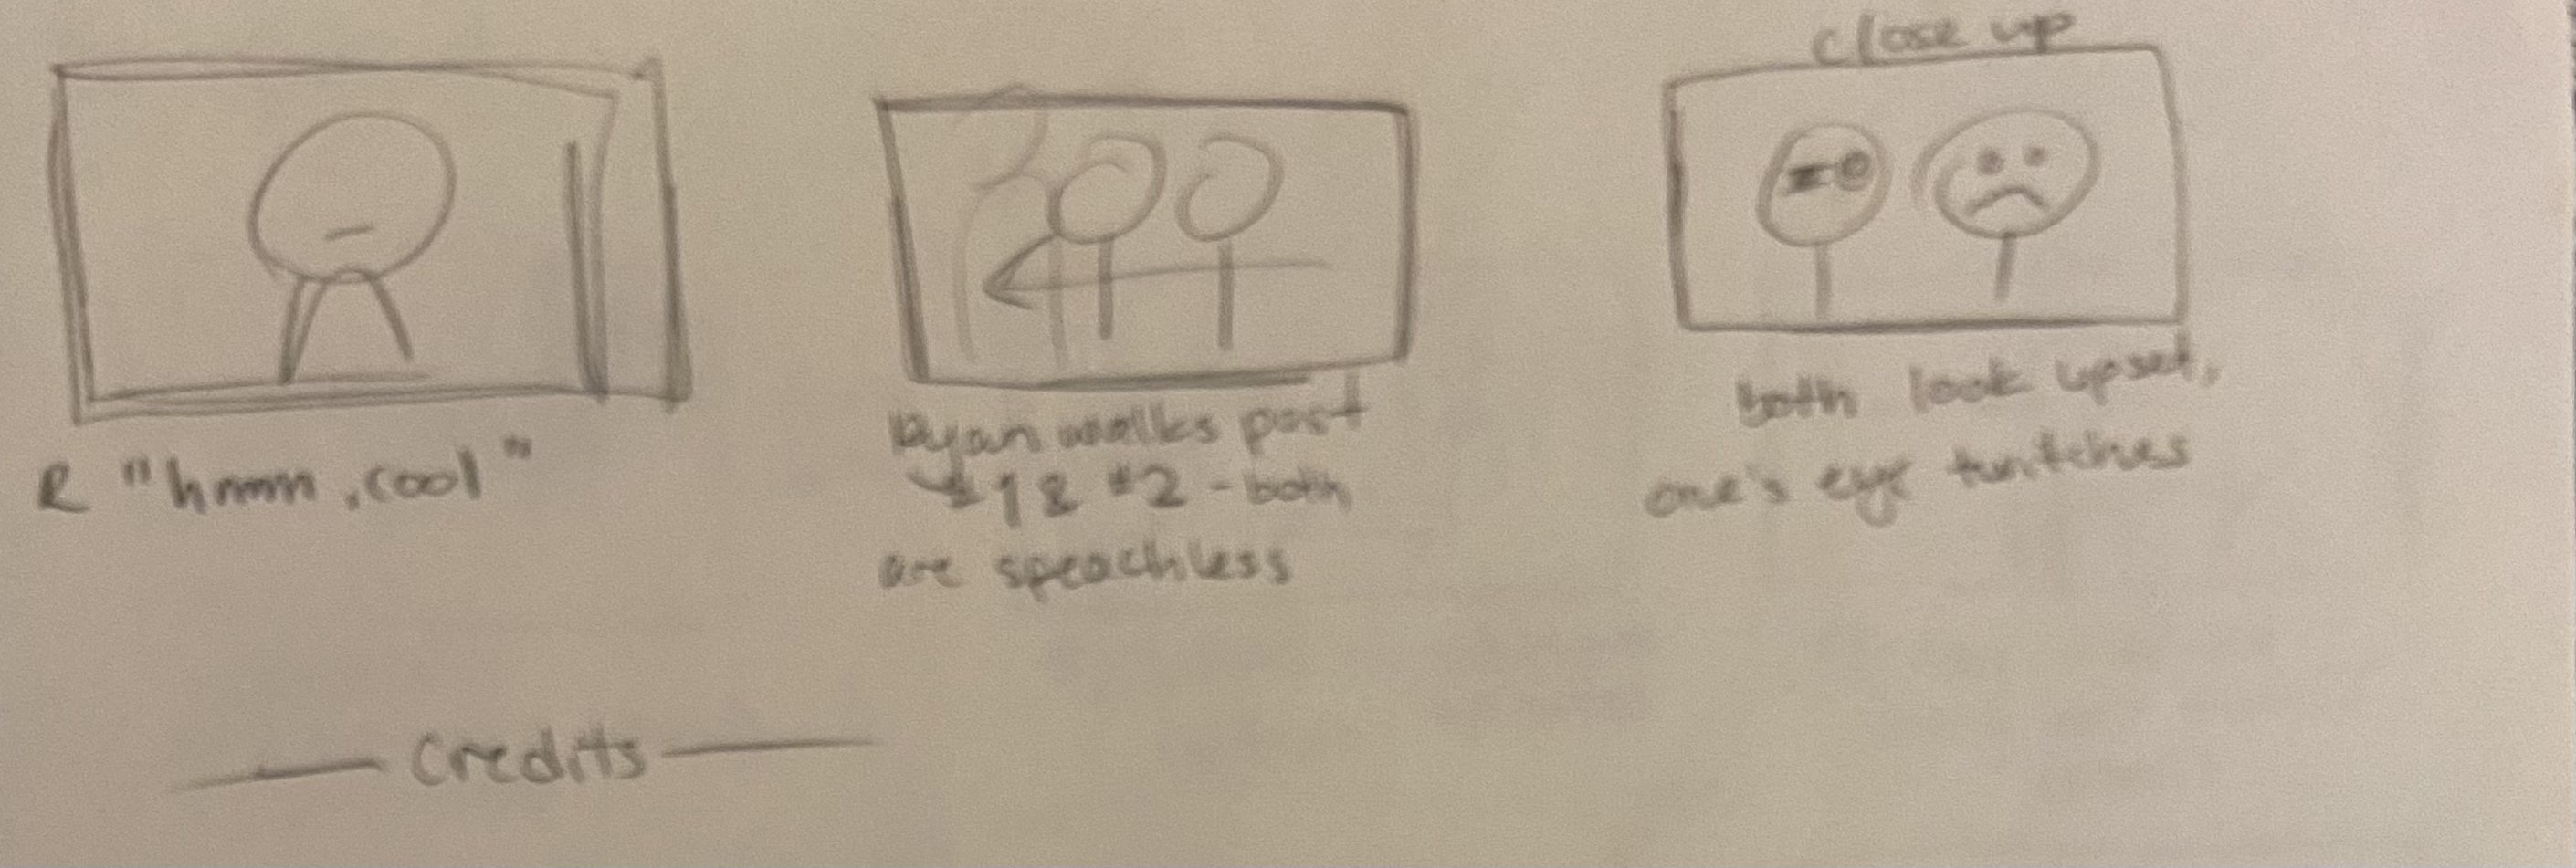 R "hmm, cool"
Ryan walks past
#1 & #2 - both
are speachless
close up
both look upset,
one's eye twitches
Credits